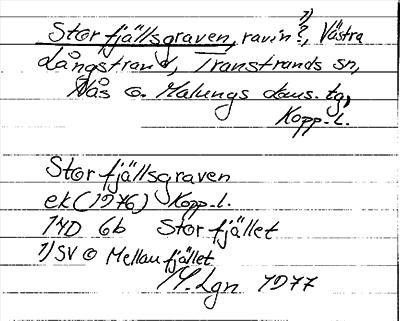 Storfjällsgraven, ravin?, 1) Västra
Långstrand, Transtrands sn,
Nås o. Malungs doms. tg,
Kopp. l.
Storfjällsgraven
ek (1976) Kopp. l.
14D 6b Storfjället
1) SV o Mellanfjället
M. Lgn 1977